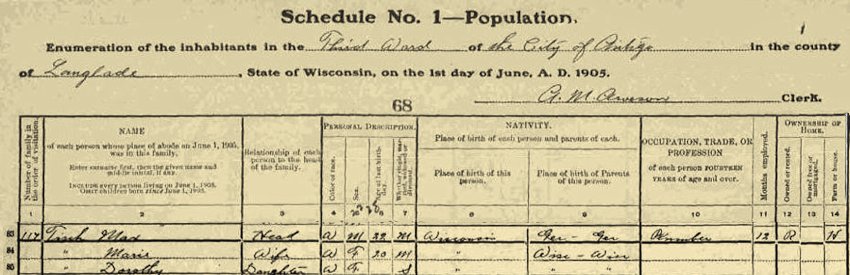 Schedule No. 1—Population.
Enumeration of the inhabitants in the Third Ward of the City of Antigo in the county
of Langlade, State of Wisconsin, on the 1st day of June, A. D. 1905.
68
G. M. Clerk.
Number of family in the order of visitation.
NAME
of each person whose place of abode on June 1, 1905, was in this family.
Enter surname first, then the given name and middle initial, if any.
INCLUDE every person living on June 1, 1905.
OMIT children born since June 1, 1905.
Relationship of each person to the head of the family.
PERSONAL DESCRIPTION.
Color or race.
Sex.
Age at last birthday.
Whether single, married, widowed or divorced.
NATIVITY.
Place of birth of each person and parents of each.
Place of birth of this person.
Place of birth of Parents of this person.
OCCUPATION, TRADE, OR PROFESSION
of each person FOURTEEN YEARS of age and over.
Months employed.
OWNERSHIP OF HOME.
Owned or rented.
Owned free or mortgaged.
Farm or house.
1 2 3 4 5 6 7 8 9 10 11 12 13 14
83 117 Tisch Max Head W M 22 M Wisconsin Ger - Ger 12 R H
84 " Marie Wife W F 20 M " Wisc - Wisc
85 " Dorothy Daughter W F S " "